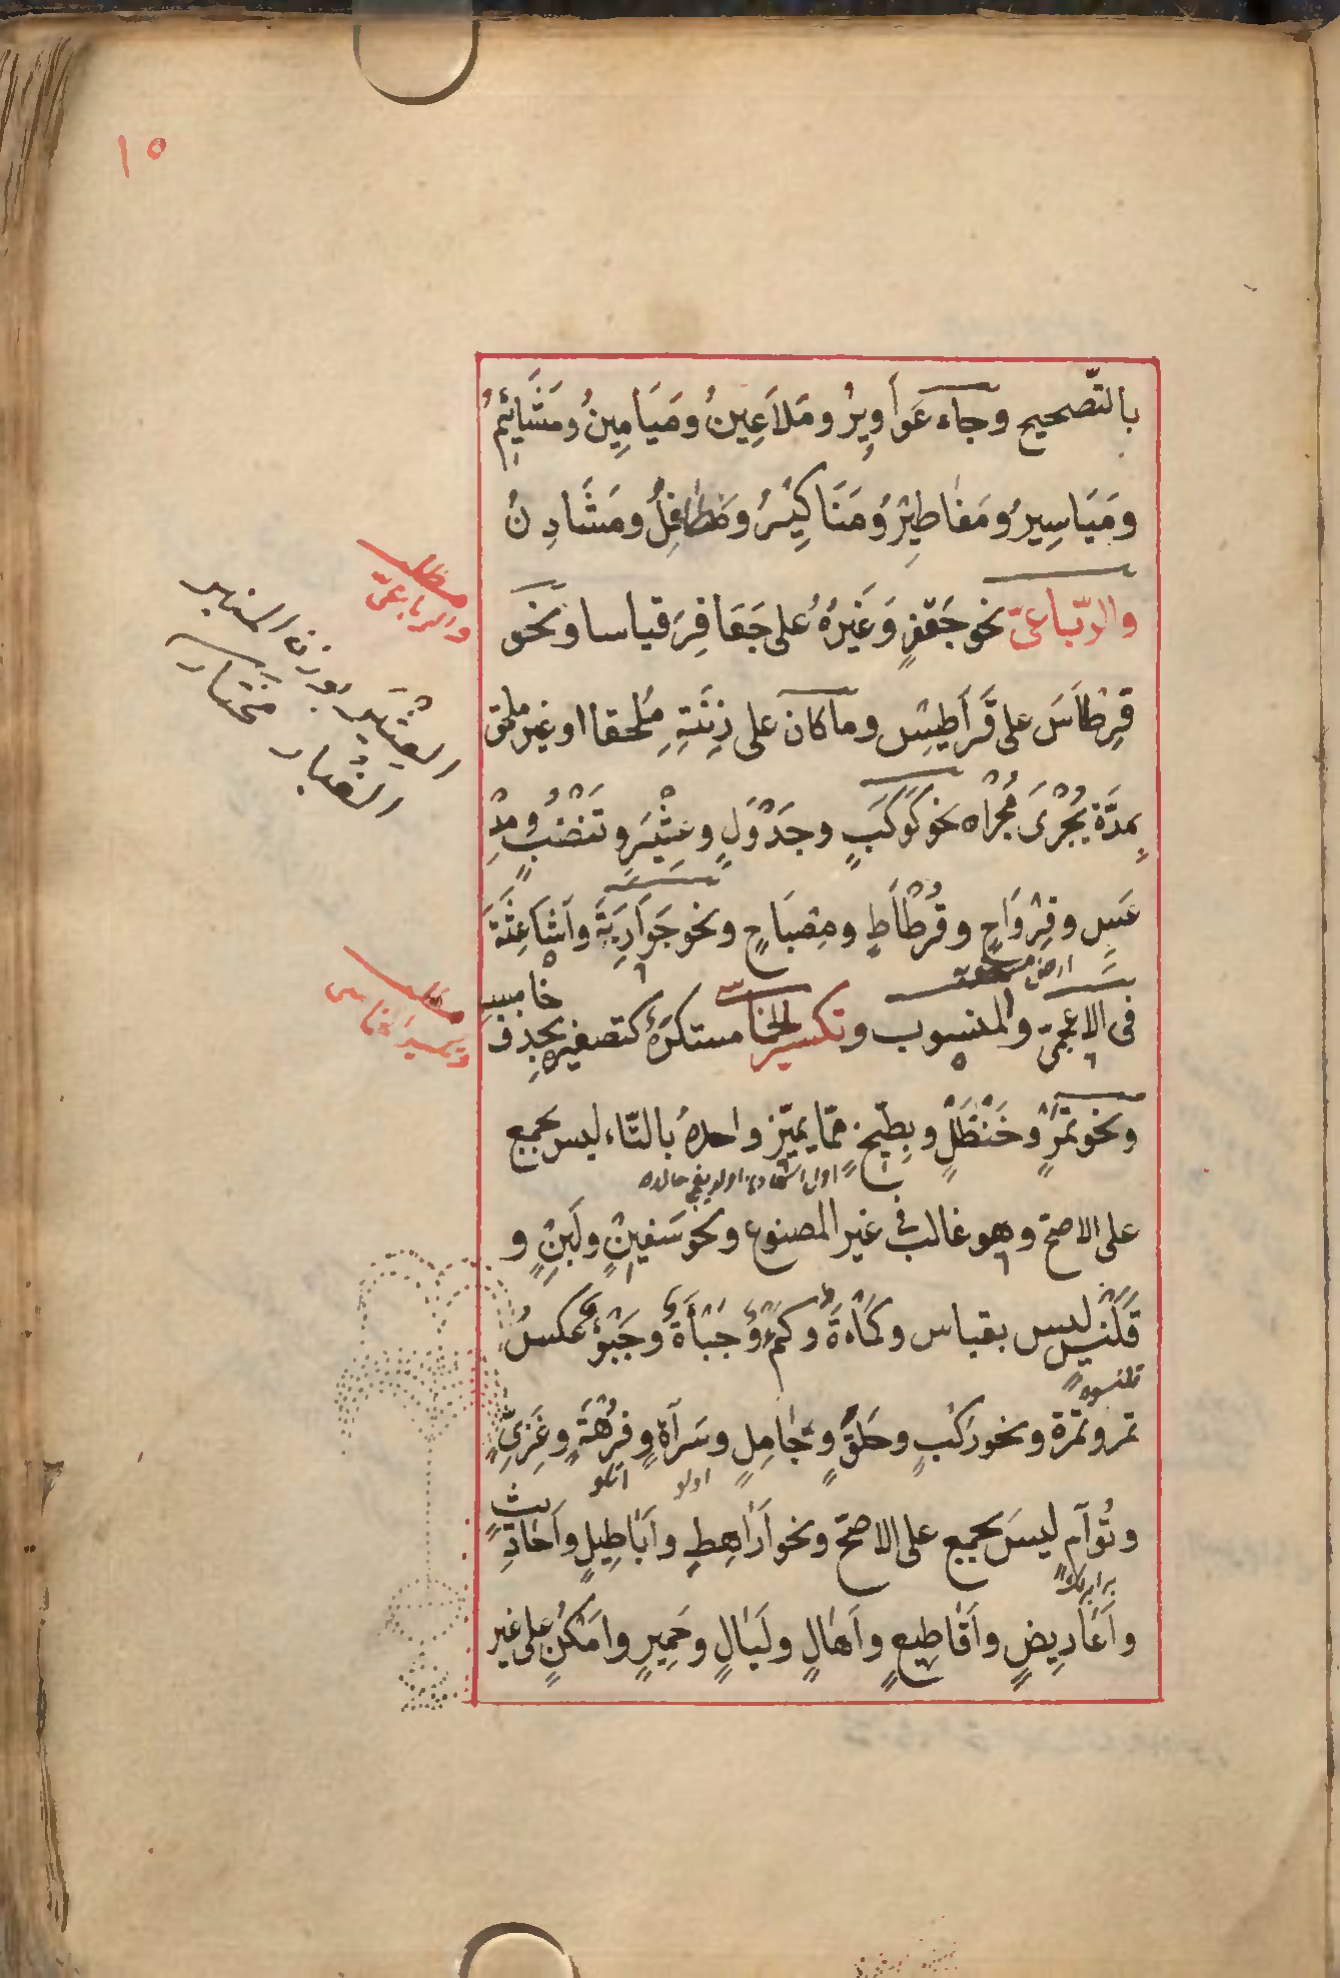 ١٥
بالتّصحيح وجاء عَوَاوِيرُ ومَلاَعِينُ ومَيَامِينُ ومَشَائِمُ
ومَيَاسِيرُ ومَفَاطِيْرُ ومَنَاكِيْرُ ومَطَافِلُ ومَشَادِنُ
والرّباعىّ نحو جَعْفَرٍ وَغَيْرُهُ على جَعَافِرَ قياسا ونحَو
قِرْطَاسَ على قَرَاطِيْس وما كان على زِنَتِهِ مُلحقا او غير ملحق
بِمدّة يُجْرَىٰ مُجْرَاه نحو كَوْكَبٍ وجَدْوَلٍ وعِثْيَرٍ وتَنْضُبٍ ومِدْ
عَسٍ وقِرْوَاحٍ وقُرْطَاطٍ ومِصْبَاحٍ ونحو جَوَارِبَةَ واَشَاعِثَةَ
فى الاعجمىّ والمنسوب وتكسير الخماسى مستكرَهٌ كتصغيره بحِذف خامسِهِ
ونحو تَمْرٍ وحَنْظَلٍ وبِطّيخٍ ممّا يميّز واحدهُ بالتّاء ليس بجمع
على الاصحّ وهو غالب فى غير المصنوع ونحو سَفِينٍ ولَبِنٍ و
قَلَنْسٍ ليس بقياس وكَمْأةٌ وكَمْءٌ وجَبْأَةٌ وجَبْؤٌ عكسُ
تمر وتمرة ونحو رَكْبٍ وحَلَقٍ وجَامِلٍ وسَرَاةٍ وفُرْهَةٍ وغَزِىٍّ
وتُوَآم ليسَ بجمع على الاصحّ ونحو اَرَاهِطٍ واَبَاطِيلٍ واَحَادِيثٍ
واَعَارِيضٍ واَقَاطِيعٍ واَهَالٍ ولَيَالٍ وحَمِيرٍ واَمْكُنٍ على غير
مطلب
والرباعىّ
العِثْيَر بوزن المنبر
الغُبار مختار
مطلب
وتكسير الخماسى
قلنسوه